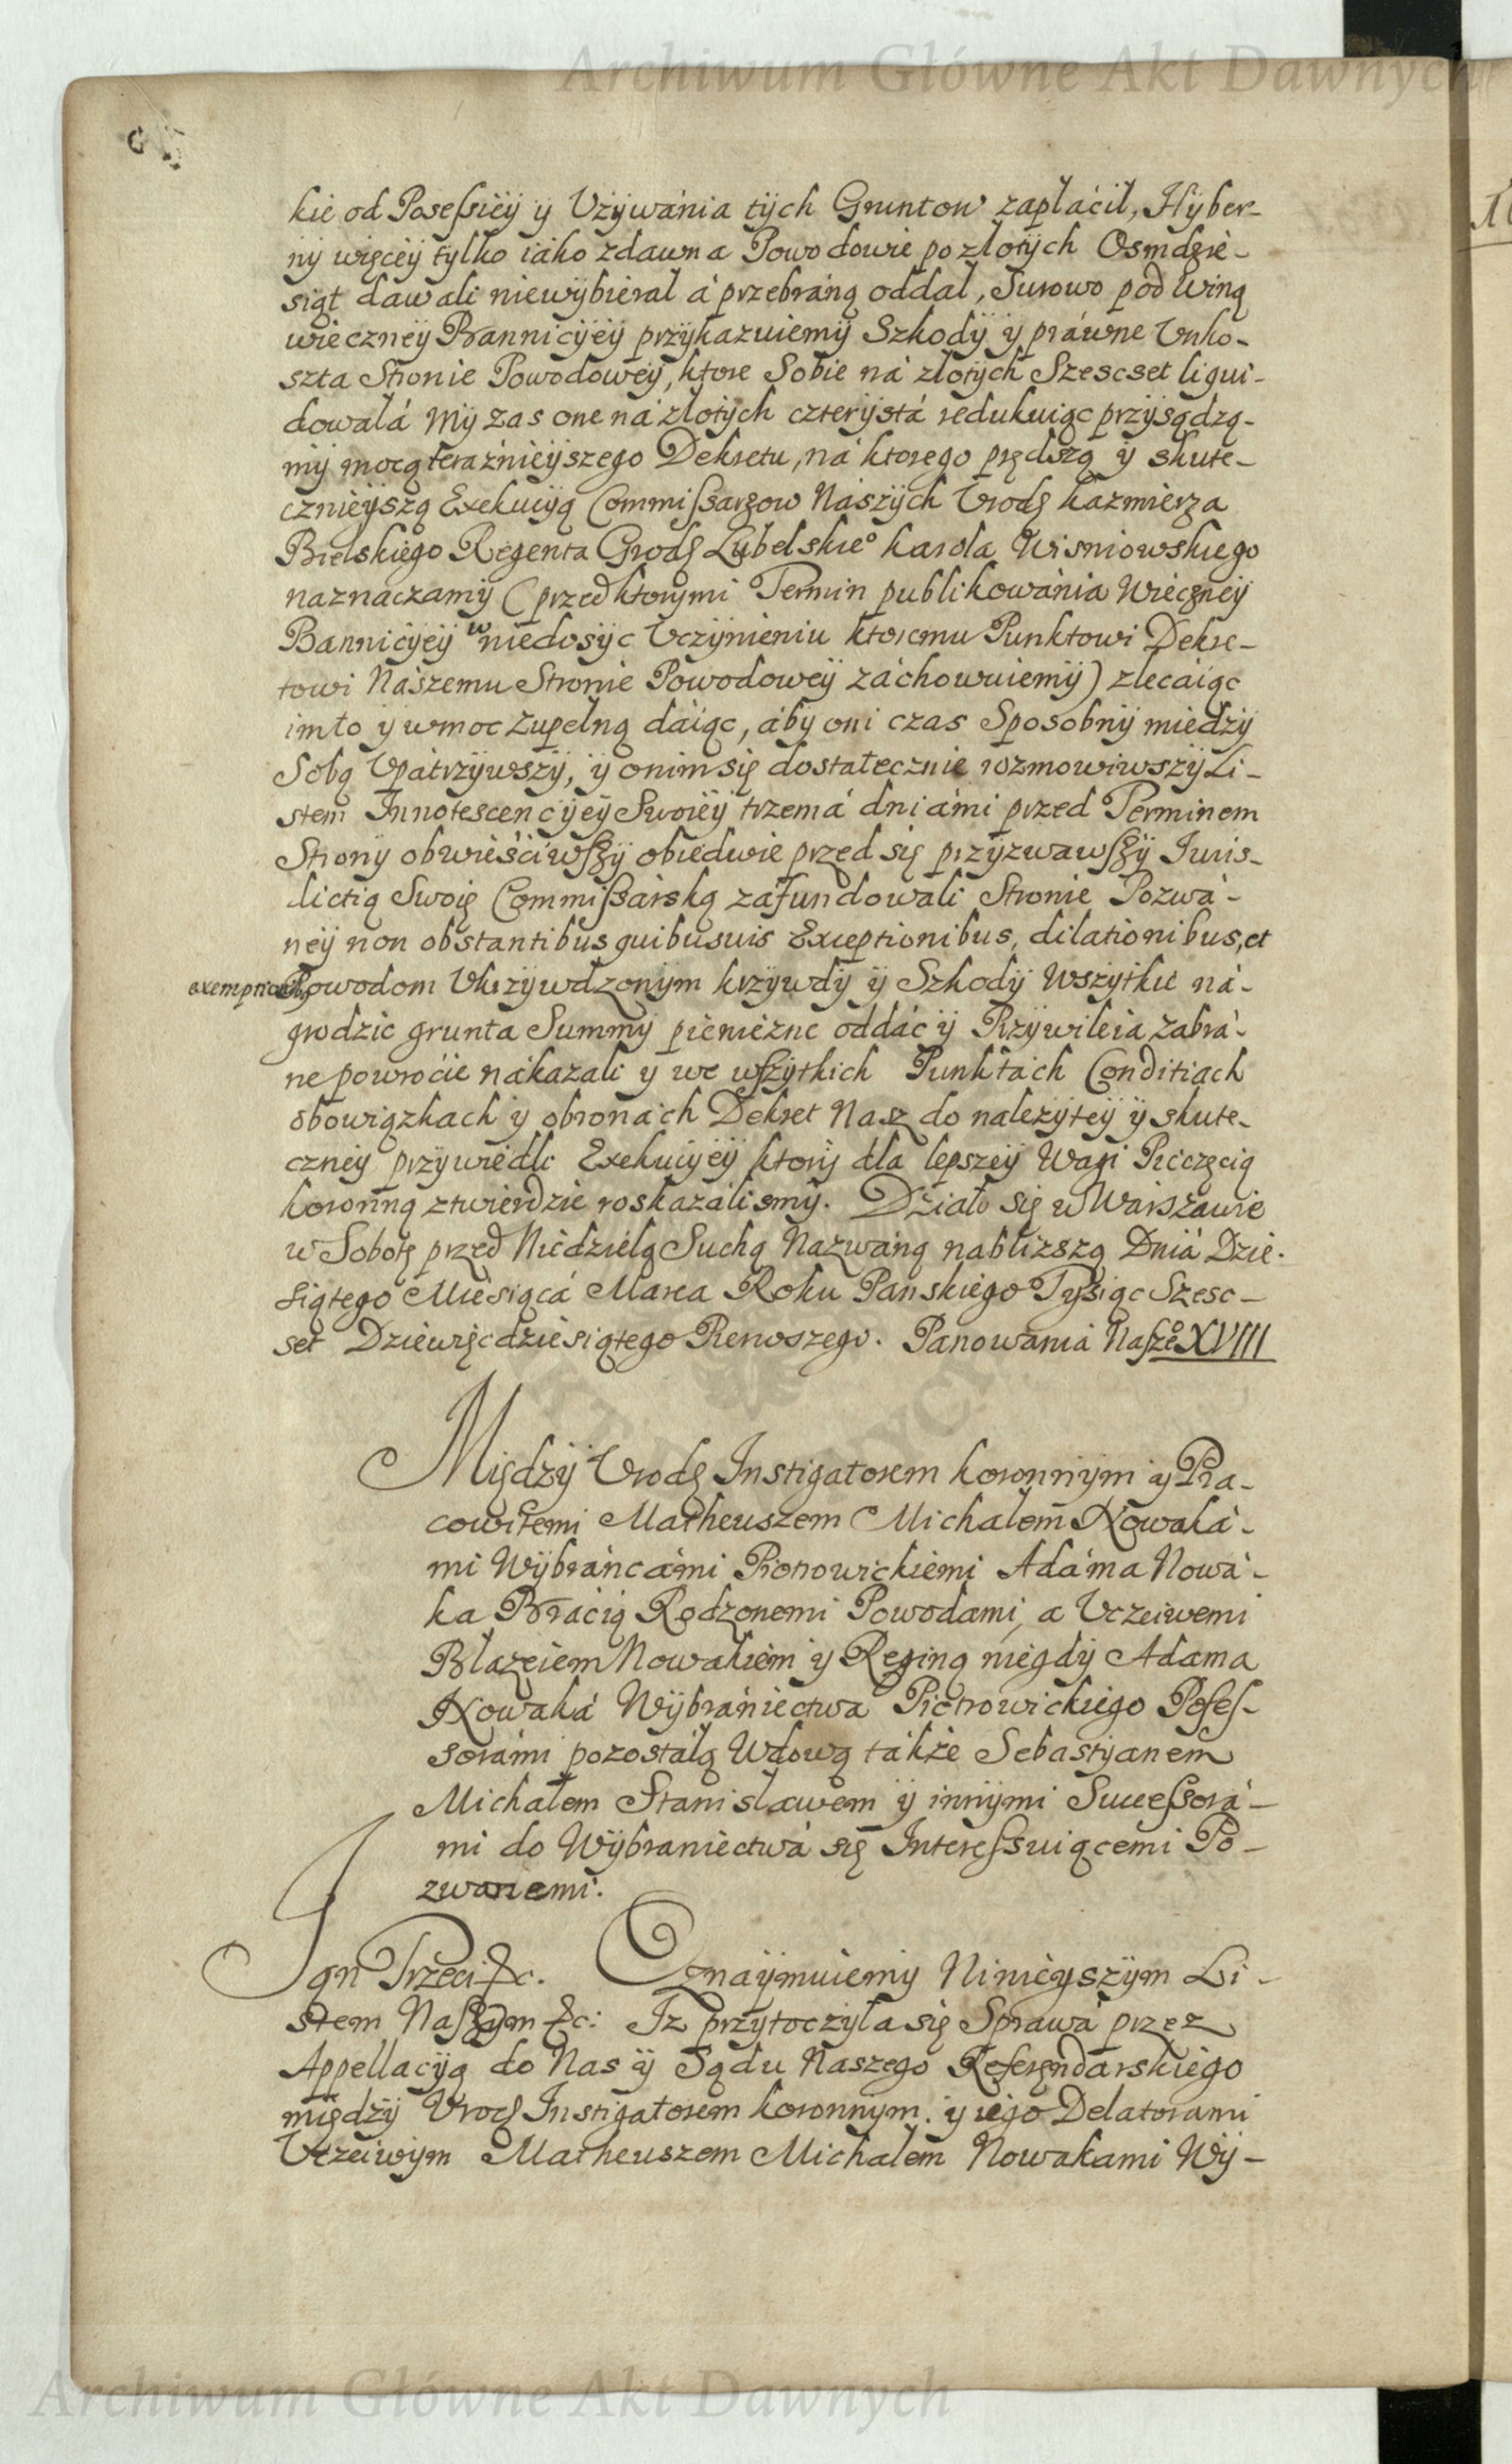 Archiwum Główne Akt Dawnych
kie od Posessiey y Vzywánia tych Gruntow zapłácił, Hyber-
ny więcey tylko iáko zdawna Powodowie po złotych Osmdzie-
siąt dawali niewybierał á przebráną oddał, Surowo pod winą
wieczney Bannicyey przykazuiemy Szkody y práwne Vnko-
szta Stronie Powodowey, ktore Sobie ná złotych Szescset ligui-
dowałá My zas one ná złotych czterystá redukuiąc przysądzą-
my mocą teraznieyszego Dekretu, ná ktorego prędszą y skute-
cznieyszą Exekucyą Commissarzow Nászych Vrodz Kazmierza
Bielskiego Regenta Grodz Lubelskieo Karola Wisniowskiego
naznáczamy (przed ktorymi Termin publikowánia Wieczney
Bannicyey w niedosyc Vczynieniu ktoremu Punktowi Dekre-
towi Nászemu Stronie Powodowey záchowuiemy) zlecáiąc
im to y w moc zupełną dáiąc, áby oni czas Sposobny miedzy
Sobą Vpátrzywszy, y onim się dostatecznie rozmowiwszy Li-
stem Innotescencyey Swoiey trzemá dniámi przed Terminem
Strony obwieśćiwszy obiedwie przed się przyzwawszy Iuris-
dictią Swoię Commissárską záfundowali Stronie Pozwá-
ney non obstantibus quibusuis Exceptionibus, dilationibus, et
exemptionibus Powodom Vkrzywdzonym krzywdy y Szkody wszytkie ná-
grodzic grunta Summy pieniezne oddác y Przywileia zabrá-
ne powroćic nákazali y we wszytkich Punktách Conditiach
obowiązkach y obronách Dekret Nasz do nalezytey y skute-
czney przywiedli Exekucyey ktory dla lepszey Wagi Pieczęcią
koronną ztwierdzic roskazálismy. Działo się w Warszawie
w Sobotę przed Niedzielą Suchą Nazwáną nablizszą Dniá Dzie-
siątego Miesiącá Marca Roku Panskiego Tysiąc Szesc-
set Dziewięcdziesiątego Pierwszego. Panowánia Naszeo XVIII
Między Vrodz Instigatorem koronnym y Pra-
cowitemi Matheuszem Michałem Nowaká-
mi Wybráncámi Piotrowickiemi Adáma Nowá-
ka Bráćią Rodzonemi Powodami, a Vczciwemi
Błazeiem Nowakiem y Reginą niegdy Adama
Nowaká Wybrániectwa Piotrowickiego Posses-
sorámi pozostáłą Wdową tákże Sebastyanem
Michałem Stanisławem y innymi Successorá-
mi do Wybraniectwá się Interessuiącemi Po-
zwanemi.
Jan Trzeci &c. Oznaymuiemy Ninieyszym Li-
stem Naszym &c: Iz przytoczyła się Sprawá przez
Appellacyą do Nas y Sądu Naszego Referendarskiego
między Vrodz Instigatorem koronnym y iego Delatorami
Vczciwym Matheuszem Michałem Nowakami Wy-
Archiwum Główne Akt Dawnych